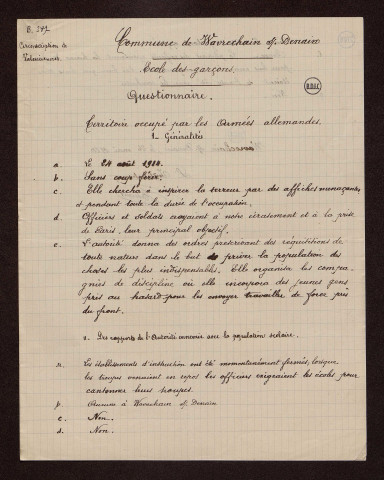 B. 277
Circonscription de
Valenciennes
Commune de Wavrechain s/ Denain
Ecole des garçons.
Questionnaire.
B.D.I.C
Territoire occupé par les Armées allemandes.
1_ Généralités.
a. Le 24 août 1914.
b. Sans coup férir.
c. Elle chercha à inspirer la terreur par des affiches menaçantes
et pendant toute la durée de l'occupation.
d. Officiers et soldats croyaient à notre écrasement et à la prise
de Paris, leur principal objectif.
e. L'autorité donna des ordres prescrivant des réquisitions de
toute nature dans le but de priver la population des
choses les plus indispensables. Elle organisa les compa-
gnies de discipline où elle incorpora des jeunes gens
pris au hasard pour les envoyer travailler de force près
du front.
2. Des rapports de l'Autorité ennemie avec la population scolaire.
a. Les établissements d'instruction ont été momentanément fermés, lorsque
les troupes venaient en repos les officiers exigeaient les écoles pour
cantonner leurs troupes.
b. Aucune à Wavrechain s/ Denain
c. Non.
d. Non.